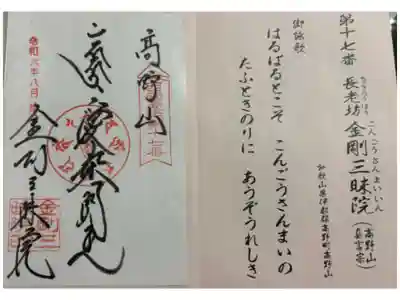 第十七番 長老坊 金剛三昧院 (高野山
真言宗)
こんごうさんまいいん
和歌山県伊都郡高野町高野山
御詠歌
はるばるとこそ こんごうさんまいの
たふときのりに あうぞうれしき
高野山
愛染明王
金剛三昧院